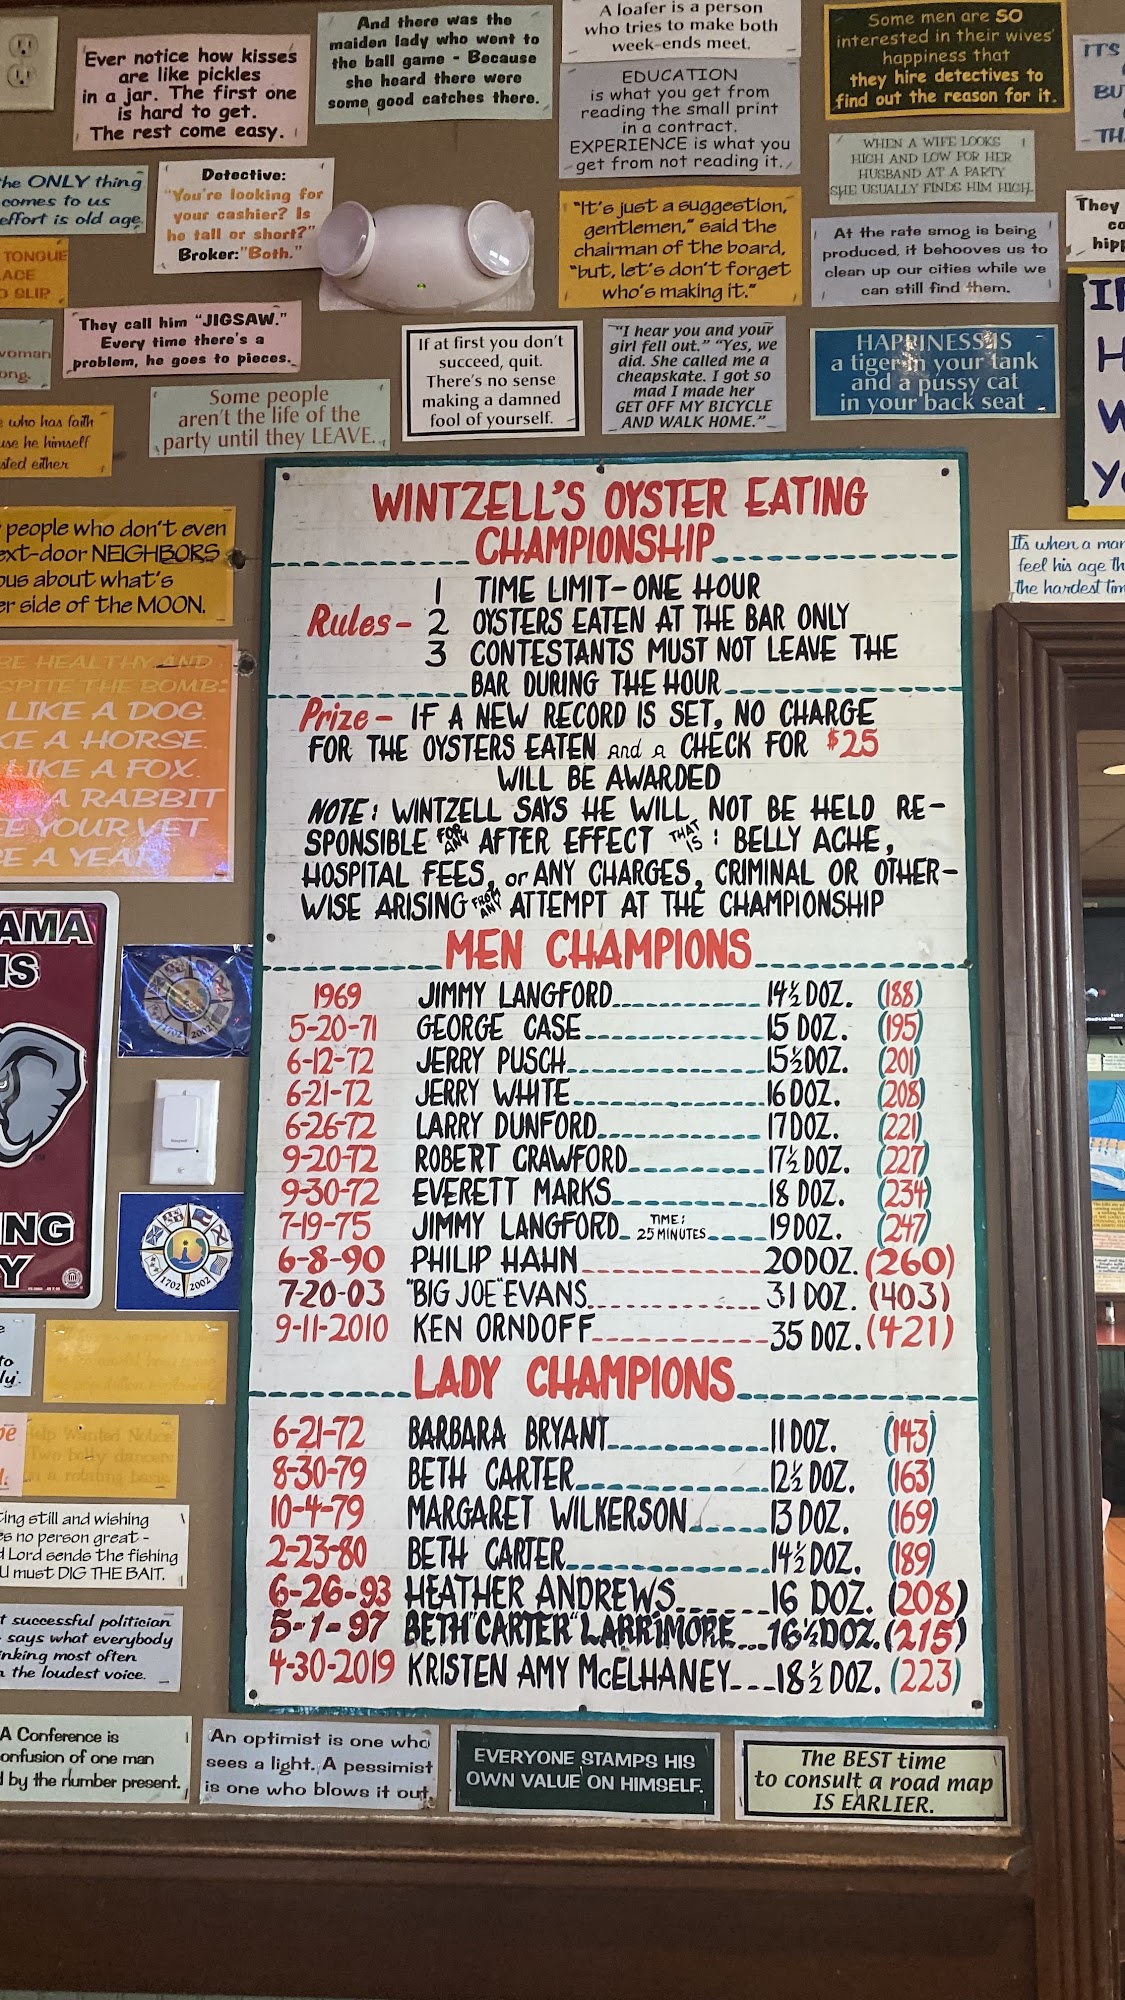 Ever notice how kisses
are like pickles
in a jar. The first one
is hard to get.
The rest come easy.
And there was the
maiden lady who went to
the ball game - Because
she heard there were
some good catches there.
A loafer is a person
who tries to make both
week-ends meet.
EDUCATION
is what you get from
reading the small print
in a contract.
EXPERIENCE is what you
get from not reading it.
Some men are SO
interested in their wives'
happiness that
they hire detectives to
find out the reason for it.
IT'S
BU
WHEN A WIFE LOOKS
HIGH AND LOW FOR HER
HUSBAND AT A PARTY
SHE USUALLY FINDS HIM HIGH.
the ONLY thing
comes to us
effort is old age.
Detective:
"You're looking for
your cashier? Is
he tall or short?"
Broker: "Both."
"It's just a suggestion,
gentlemen," said the
chairman of the board,
"but, let's don't forget
who's making it."
At the rate smog is being
produced, it behooves us to
clean up our cities while we
can still find them.
They
co
hipp
TONGUE
LACE
O SLIP
They call him "JIGSAW."
Every time there's a
problem, he goes to pieces.
woman
ong.
If at first you don't
succeed, quit.
There's no sense
making a damned
fool of yourself.
"I hear you and your
girl fell out." "Yes, we
did. She called me a
cheapskate. I got so
mad I made her
GET OFF MY BICYCLE
AND WALK HOME."
HAPPINESS IS
a tiger in your tank
and a pussy cat
in your back seat
Some people
aren't the life of the
party until they LEAVE.
who has faith
use he himself
sted either
people who don't even
ext-door NEIGHBORS
ous about what's
er side of the MOON.
Its when a man
feel his age th
the hardest tim
BE HEALTHY AND
SPITE THE BOMB:
LIKE A DOG.
KE A HORSE.
LIKE A FOX.
A RABBIT
EE YOUR VET
CE A YEAR
WINTZELL'S OYSTER EATING
CHAMPIONSHIP
Rules-
1 TIME LIMIT-ONE HOUR
2 OYSTERS EATEN AT THE BAR ONLY
3 CONTESTANTS MUST NOT LEAVE THE
BAR DURING THE HOUR
Prize- IF A NEW RECORD IS SET, NO CHARGE
FOR THE OYSTERS EATEN and a CHECK FOR $25
WILL BE AWARDED
NOTE: WINTZELL SAYS HE WILL NOT BE HELD RE-
SPONSIBLE FOR ANY AFTER EFFECT THAT IS: BELLY ACHE,
HOSPITAL FEES, or ANY CHARGES, CRIMINAL OR OTHER-
WISE ARISING FROM ANY ATTEMPT AT THE CHAMPIONSHIP
MEN CHAMPIONS
1969 JIMMY LANGFORD 14½ DOZ. (188)
5-20-71 GEORGE CASE 15 DOZ. (195)
6-12-72 JERRY PUSCH 15½ DOZ. (201)
6-21-72 JERRY WHITE 16 DOZ. (208)
6-26-72 LARRY DUNFORD 17 DOZ. (221)
9-20-72 ROBERT CRAWFORD 17½ DOZ. (227)
9-30-72 EVERETT MARKS 18 DOZ. (234)
7-19-75 JIMMY LANGFORD TIME: 25 MINUTES 19 DOZ. (247)
6-8-90 PHILIP HAHN 20 DOZ. (260)
7-20-03 "BIG JOE" EVANS 31 DOZ. (403)
9-11-2010 KEN ORNDOFF 35 DOZ. (421)
LADY CHAMPIONS
6-21-72 BARBARA BRYANT 11 DOZ. (143)
8-30-79 BETH CARTER 12½ DOZ. (163)
10-4-79 MARGARET WILKERSON 13 DOZ. (169)
2-23-80 BETH CARTER 14½ DOZ. (189)
6-26-93 HEATHER ANDREWS 16 DOZ. (208)
5-1-97 BETH "CARTER" LARRIMORE 16½ DOZ. (215)
4-30-2019 KRISTEN AMY McELHANEY 18½ DOZ. (223)
AMA
IS
1702 2002
ING
Y
1702 2002
to
ly'.
Help Wanted Notice
Two belly dancers
on a rotating basis
ing still and wishing
es no person great -
Lord sends the fishing
U must DIG THE BAIT.
t successful politician
says what everybody
inking most often
n the loudest voice.
A Conference is
onfusion of one man
d by the number present.
An optimist is one who
sees a light. A pessimist
is one who blows it out.
EVERYONE STAMPS HIS
OWN VALUE ON HIMSELF.
The BEST time
to consult a road map
IS EARLIER.